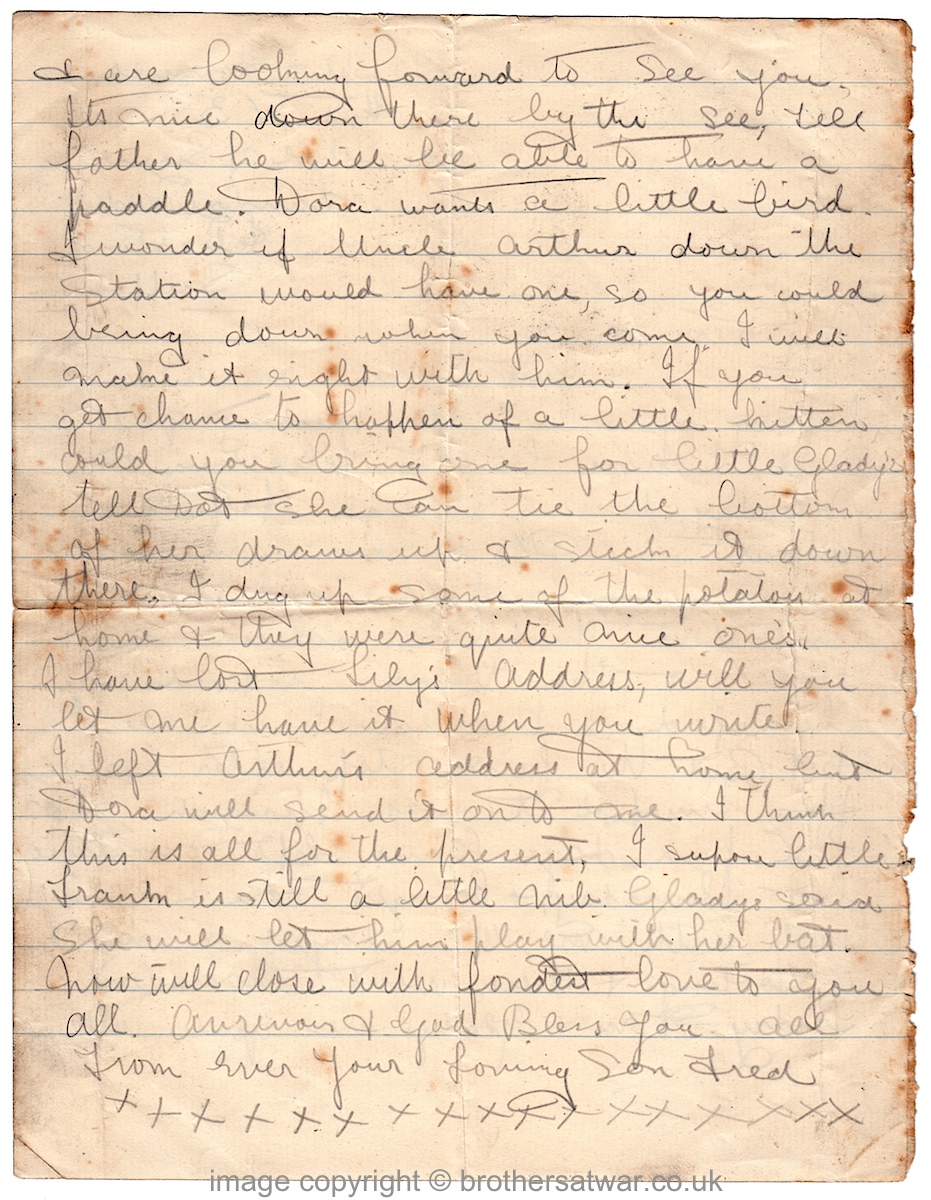 & are looking forward to see you,
Its nice down there by the see, tell
father he will be able to have a
paddle. Dora wants a little bird.
I wonder if Uncle Arthur down the
Station would have one, so you could
bring down when you come. I will
make it right with him. If you
get chance to happen of a little kitten
could you bring one for little Gladys,
tell Dot she can tie the bottom
of her draws up & stick it down
there. I dug up some of the potatoes at
home & they were quite nice ones.
I have lost Lily's Address, will you
let me have it when you write.
I left Arthur's address at home but
Dora will send it on to me. I think
this is all for the present, I supose little
Frank is still a little nib. Gladys said
She will let him play with her bat.
Now will close with fondest love to you
all. Aurevoir & God Bless You all
From ever your Loving Son Fred
x x x x x x x x x x x x x x x x x
image copyright © brothersatwar.co.uk